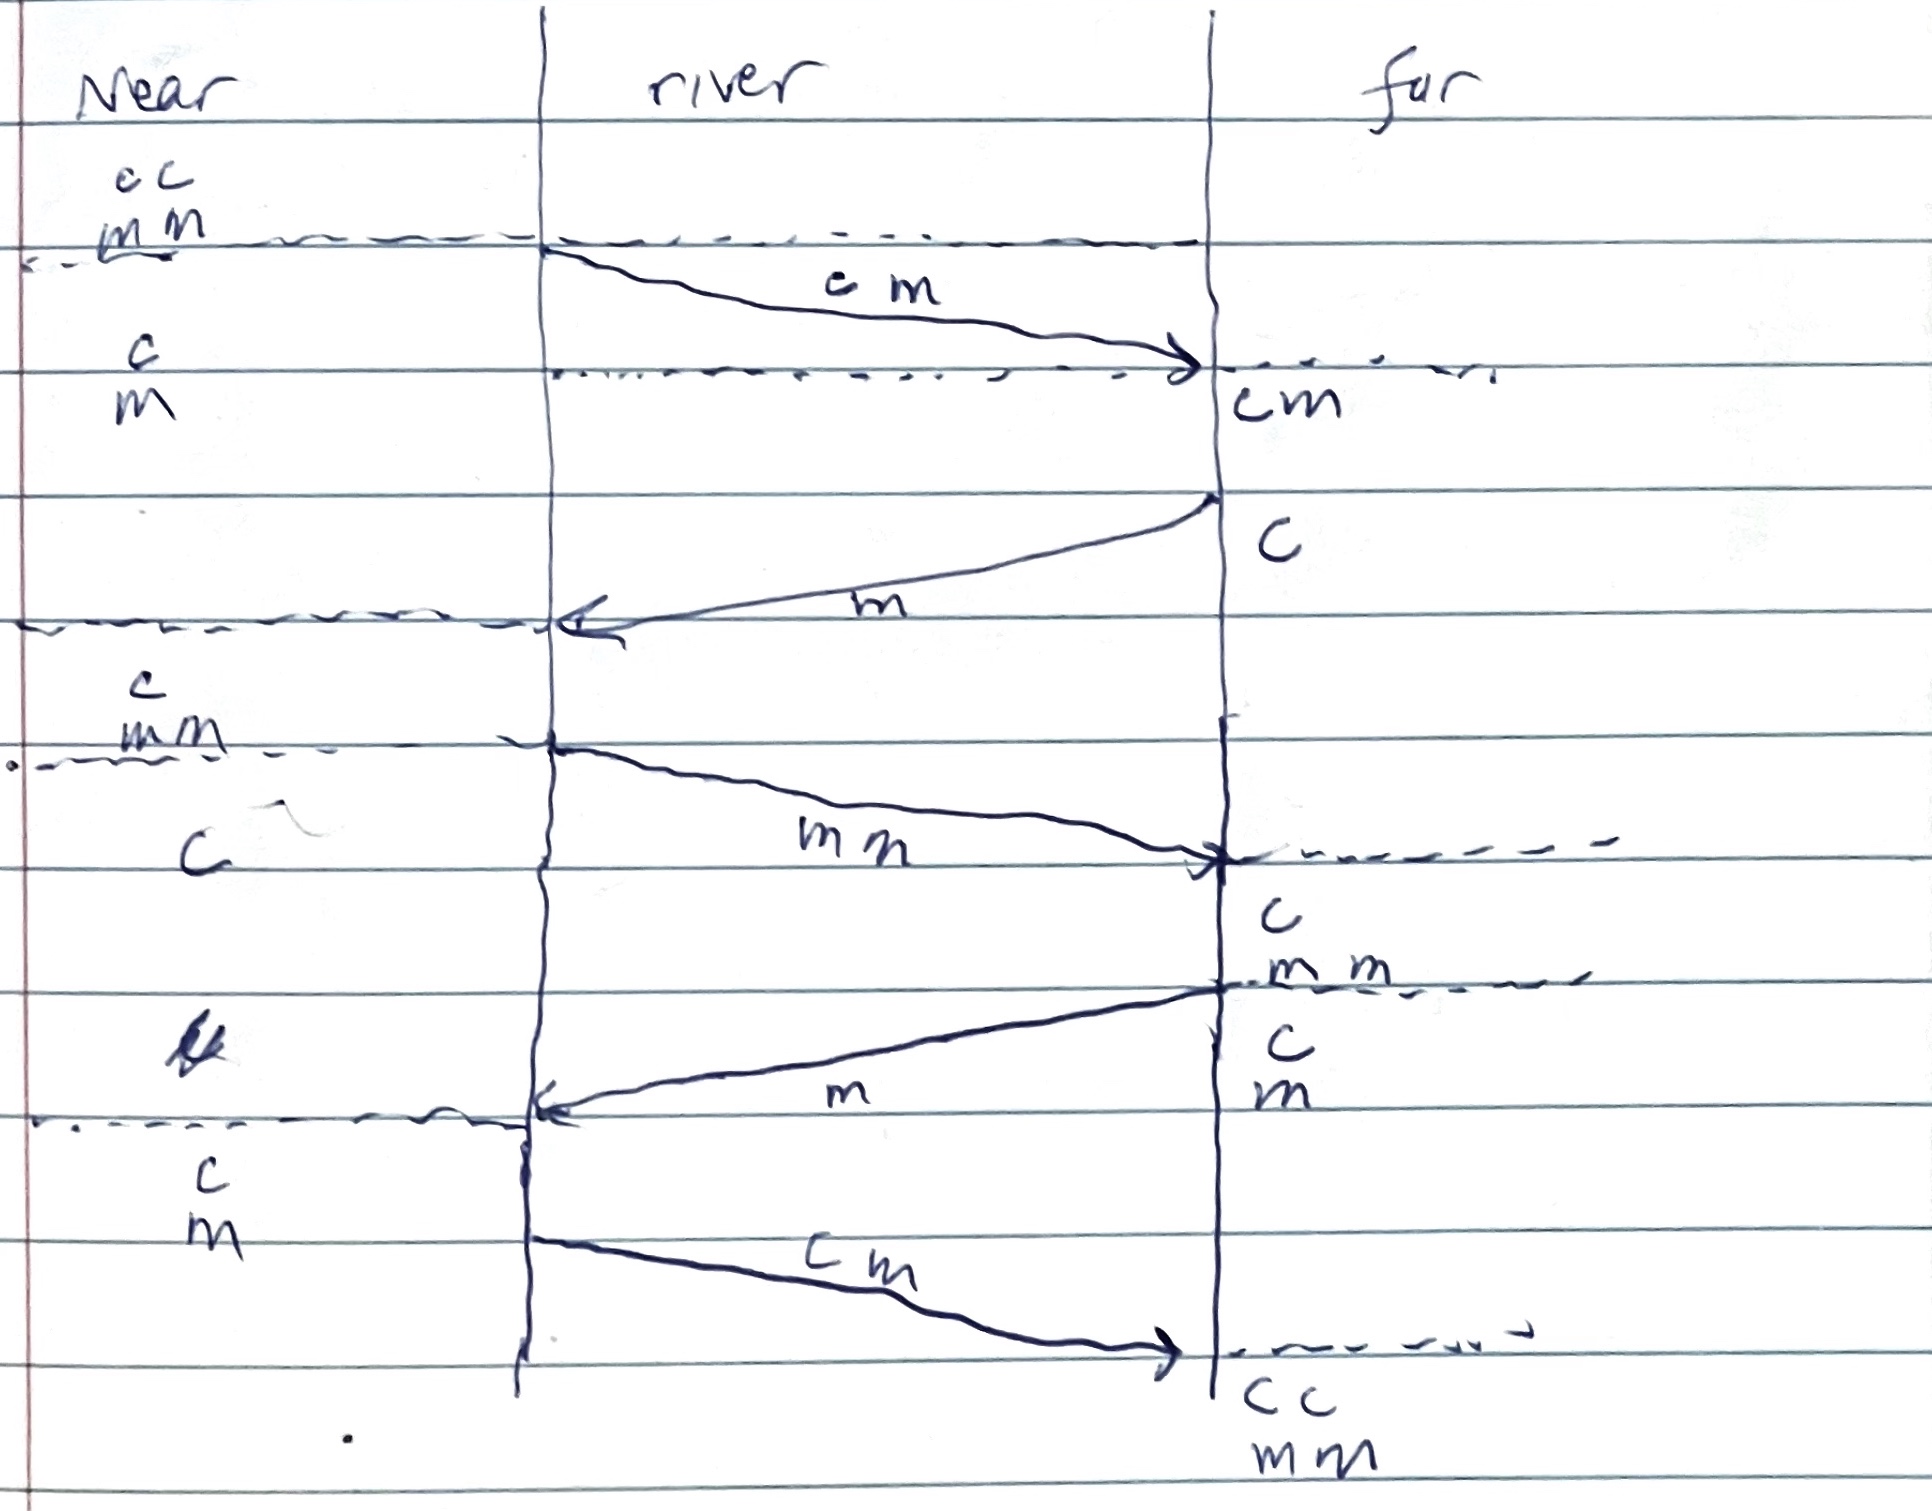 Near river far
c c
m m
c m
c
m
c m
C
m
c
m m
m m
C
C
m m
C
m
m
C
m
C m
C C
m m